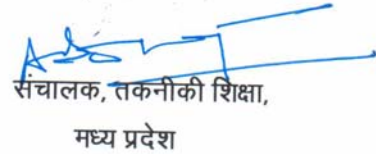 संचालक, तकनीकी शिक्षा,
मध्य प्रदेश